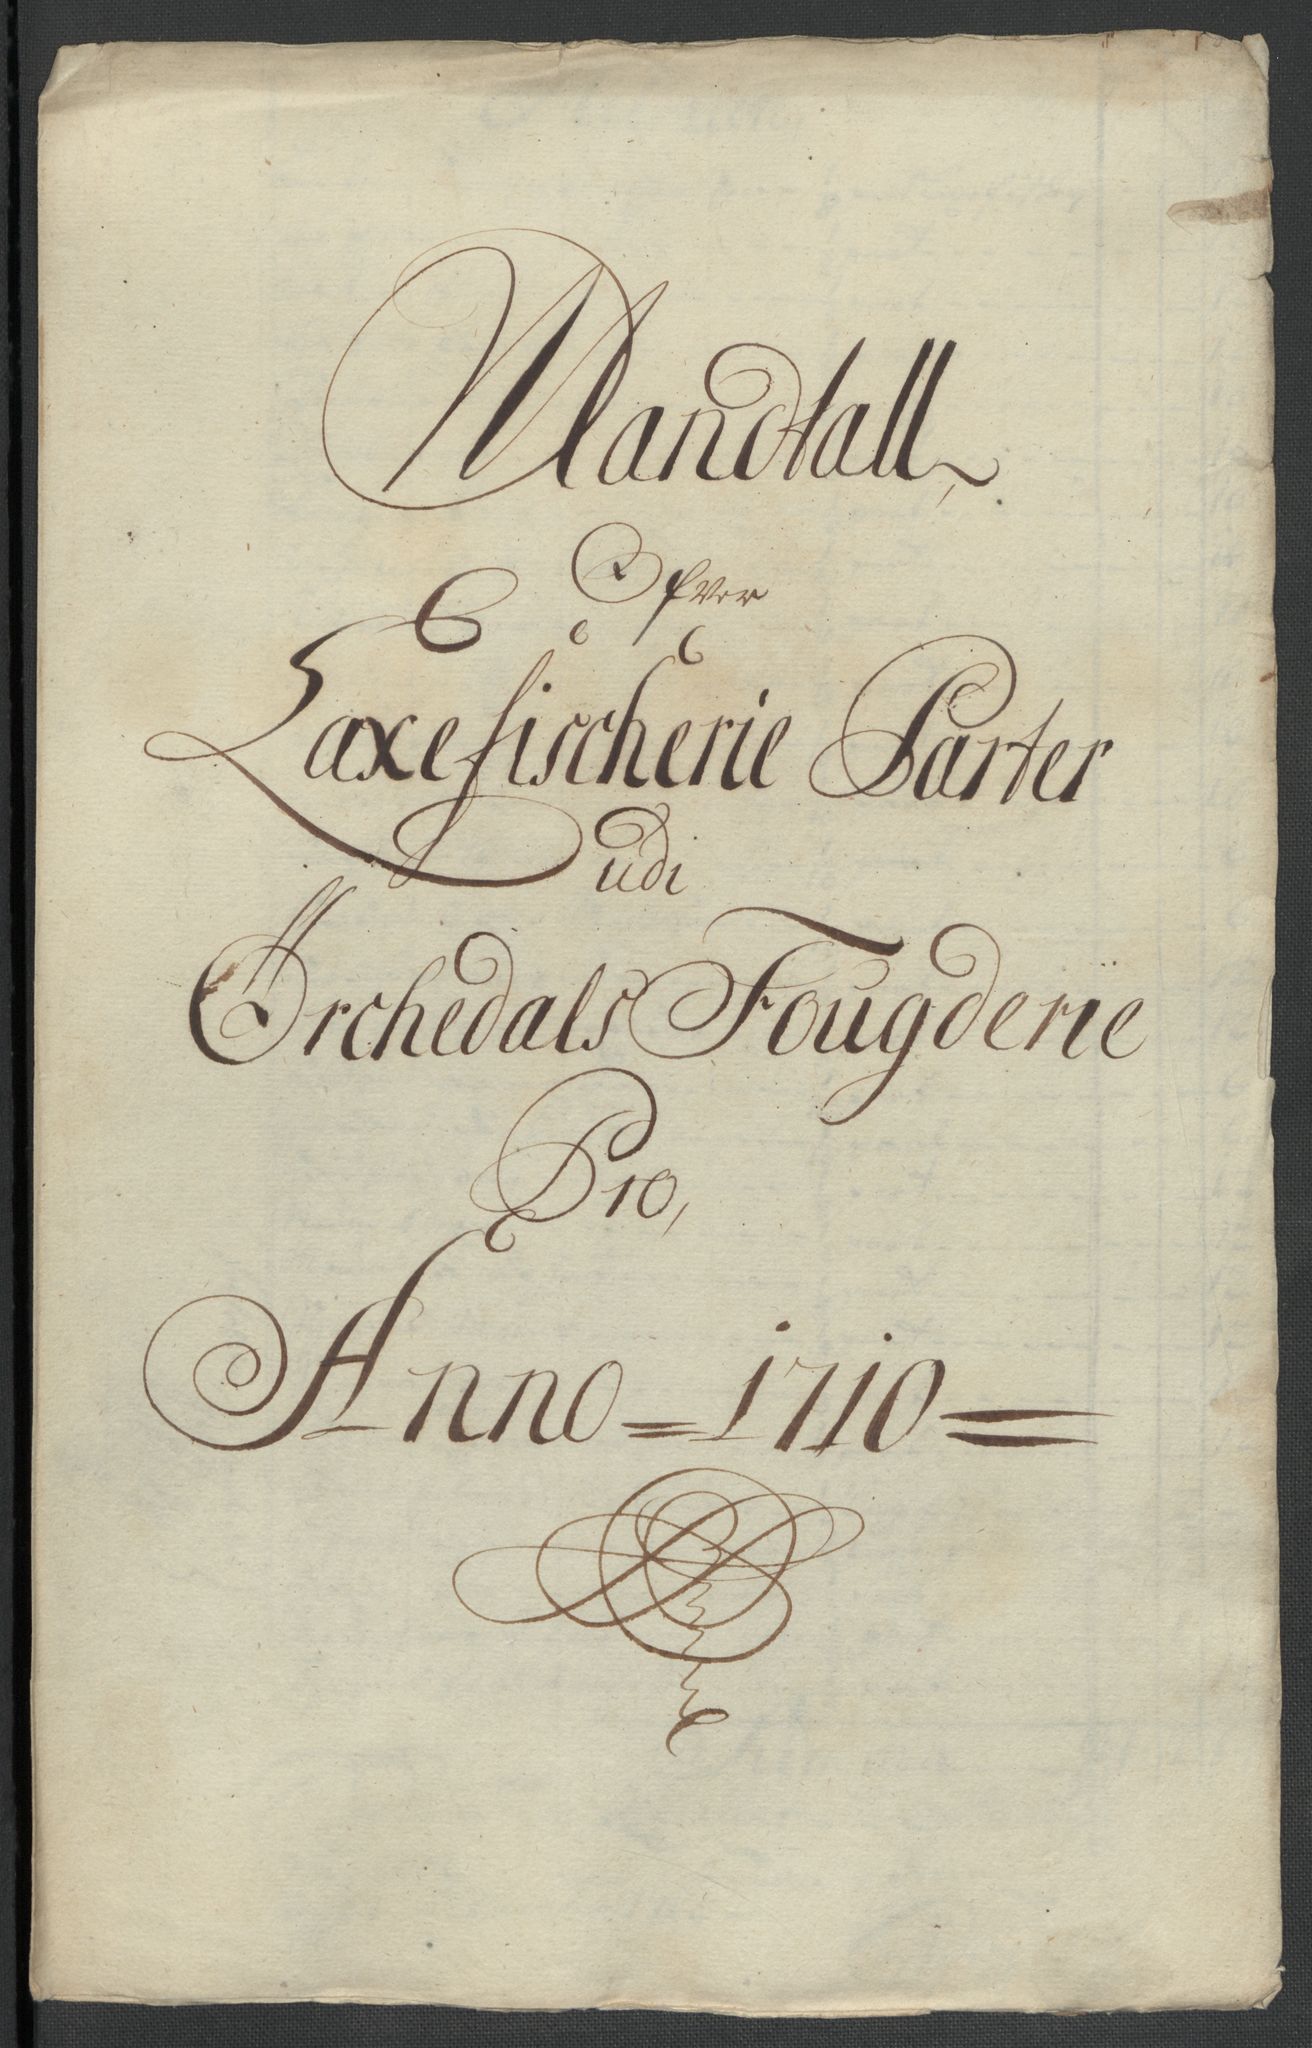 Mandtall
Ofver
Laxefischerie Parter
udi
Orchedals Fougderie
Pro,
Anno = 1710 =